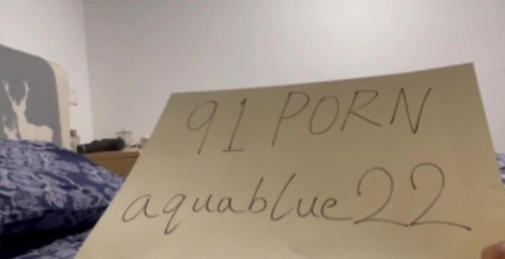 91 PORN
aquablue22